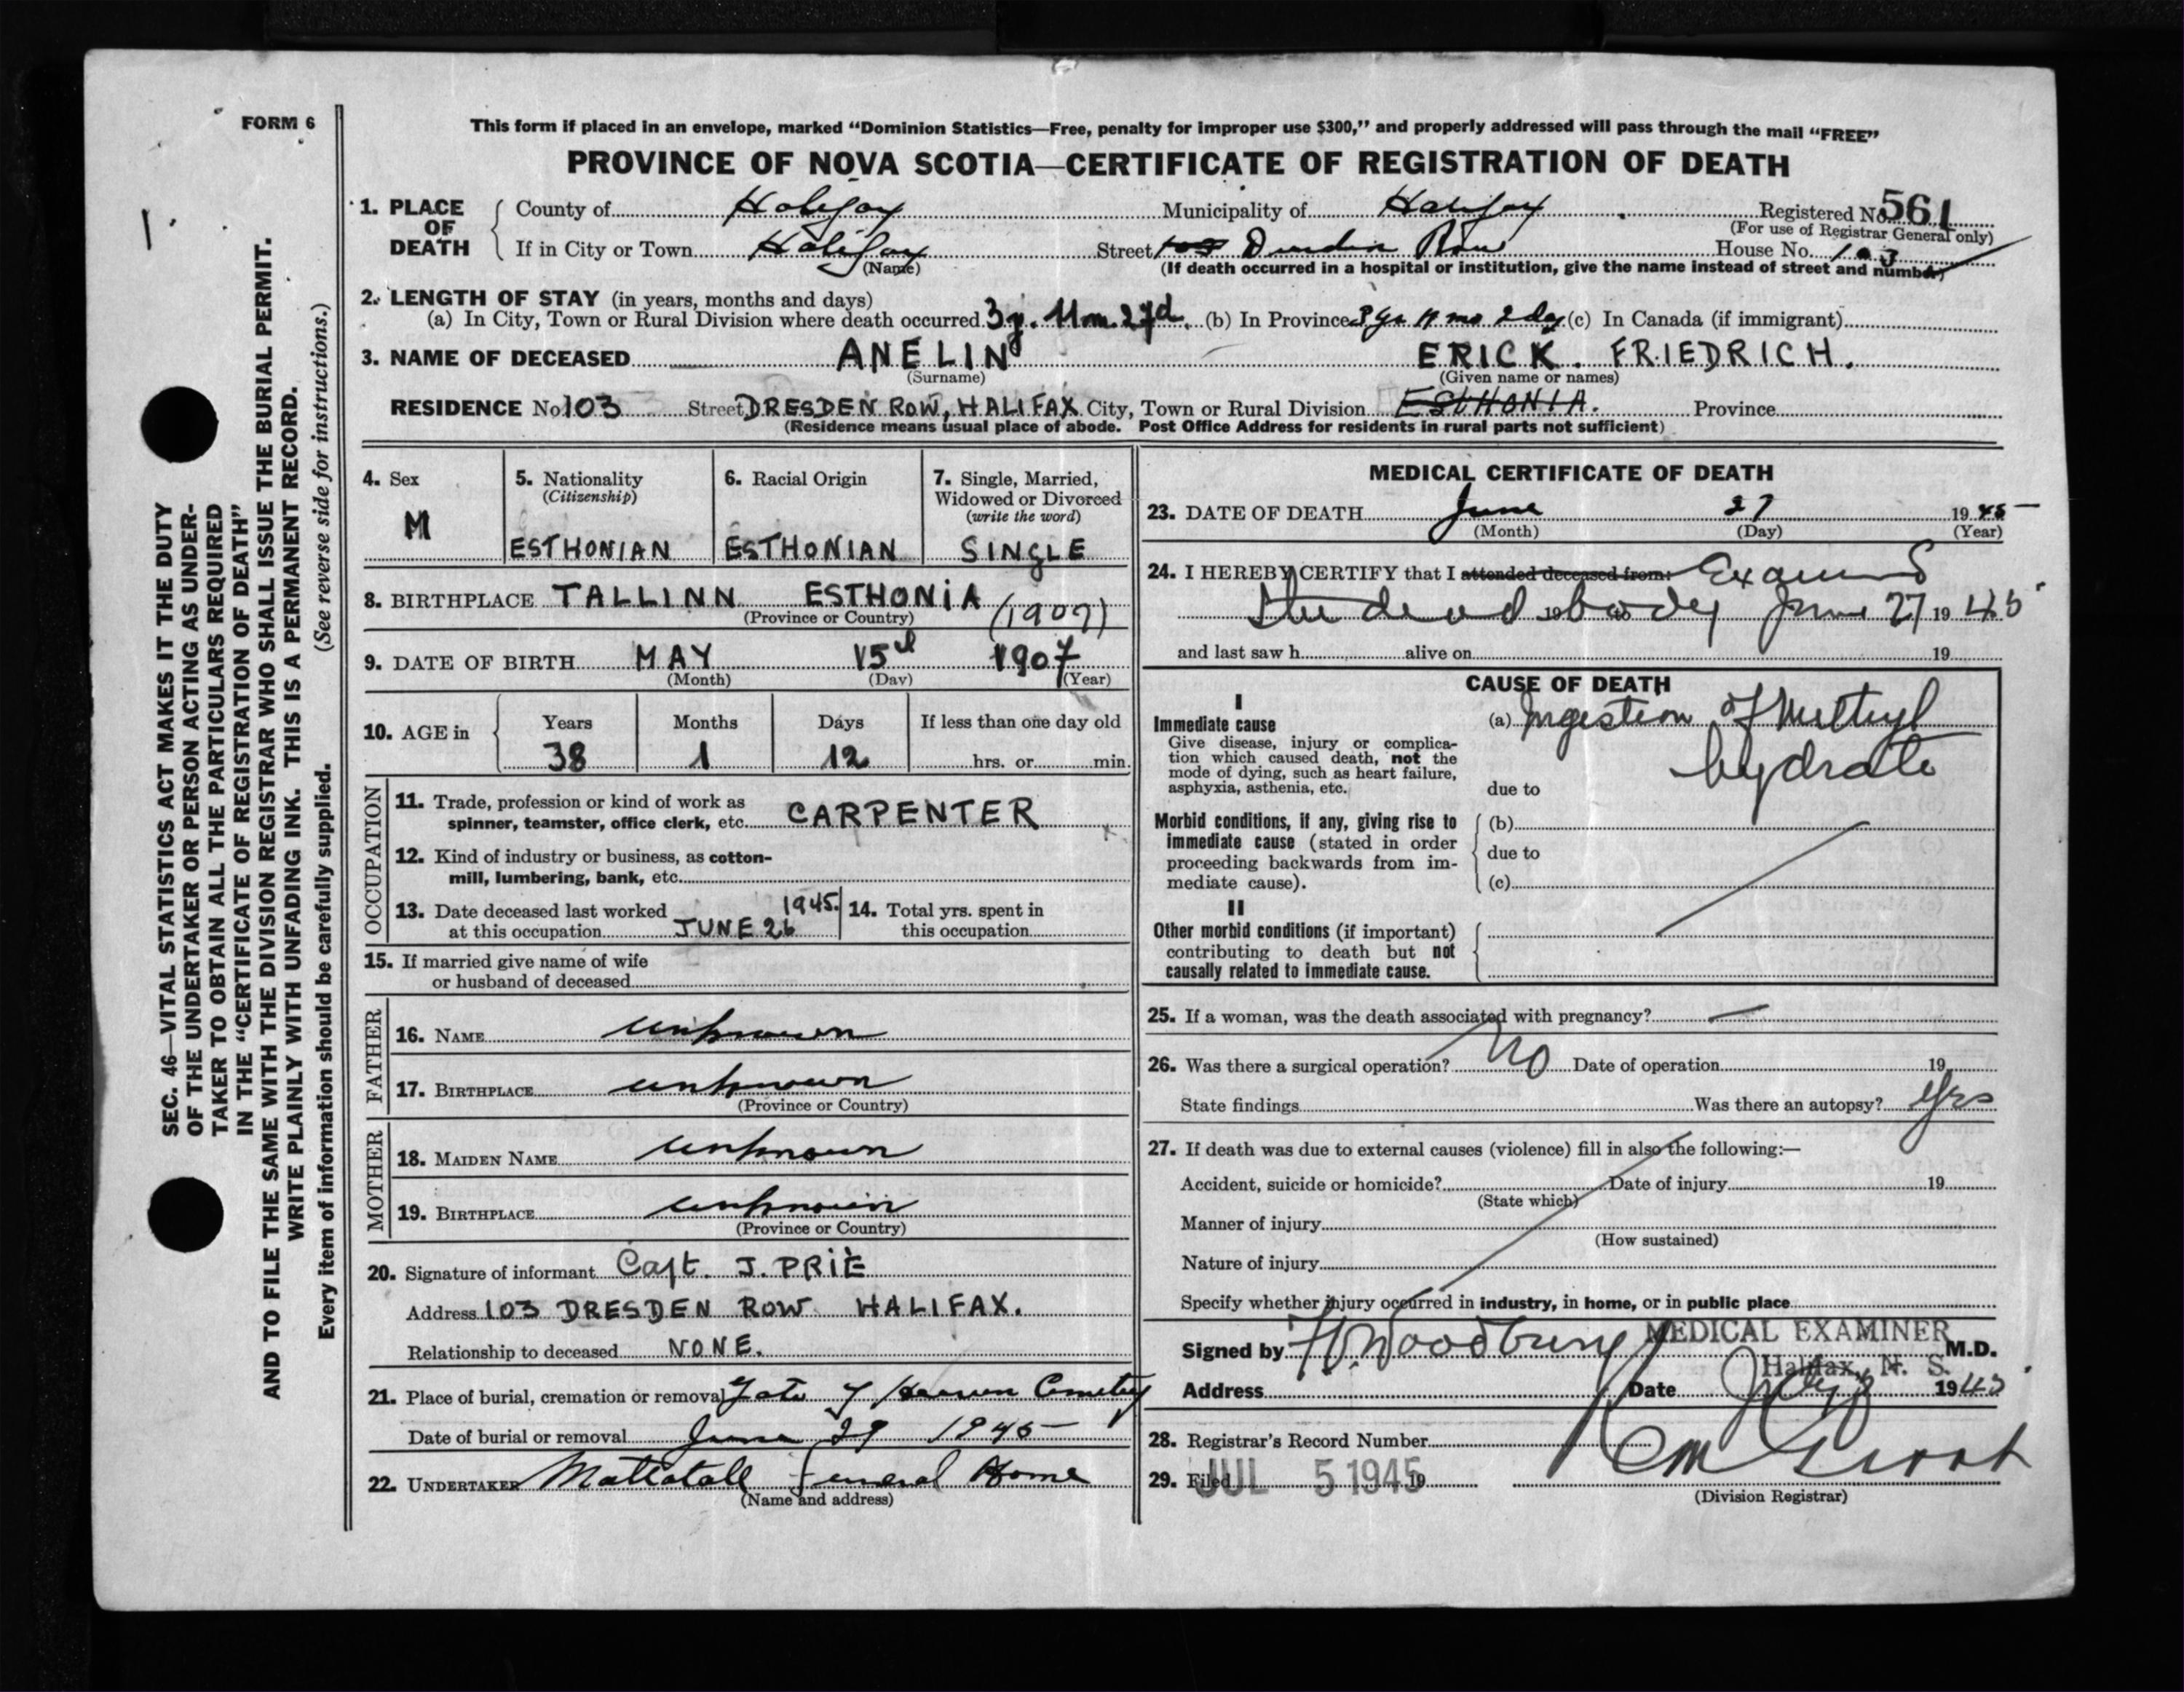 FORM 6
This form if placed in an envelope, marked "Dominion Statistics—Free, penalty for improper use $300," and properly addressed will pass through the mail "FREE"
PROVINCE OF NOVA SCOTIA—CERTIFICATE OF REGISTRATION OF DEATH
1.
SEC. 46—VITAL STATISTICS ACT MAKES IT THE DUTY
OF THE UNDERTAKER OR PERSON ACTING AS UNDER-
TAKER TO OBTAIN ALL THE PARTICULARS REQUIRED
IN THE "CERTIFICATE OF REGISTRATION OF DEATH"
AND TO FILE THE SAME WITH THE DIVISION REGISTRAR WHO SHALL ISSUE THE BURIAL PERMIT.
WRITE PLAINLY WITH UNFADING INK. THIS IS A PERMANENT RECORD.
Every item of information should be carefully supplied. (See reverse side for instructions.)
1. PLACE OF DEATH
County of Halifax Municipality of Halifax Registered No. 561
(For use of Registrar General only)
If in City or Town Halifax Street Dresden Row House No. 103
(Name) (If death occurred in a hospital or institution, give the name instead of street and number)
2. LENGTH OF STAY (in years, months and days)
(a) In City, Town or Rural Division where death occurred 3y. 11m. 27d. (b) In Province 3 yr 11 mo 2 day (c) In Canada (if immigrant)
3. NAME OF DECEASED ANELIN ERICK. FRIEDRICH.
(Surname) (Given name or names)
RESIDENCE No 103 Street DRESDEN ROW, HALIFAX City, Town or Rural Division ESTHONIA. Province
(Residence means usual place of abode. Post Office Address for residents in rural parts not sufficient)
4. Sex
M
5. Nationality
(Citizenship)
ESTHONIAN
6. Racial Origin
ESTHONIAN
7. Single, Married,
Widowed or Divorced
(write the word)
SINGLE
8. BIRTHPLACE TALLINN ESTHONIA (1907)
(Province or Country)
9. DATE OF BIRTH MAY 15 1907
(Month) (Day) (Year)
10. AGE in
Years Months Days If less than one day old
38 1 12 hrs. or min.
OCCUPATION
11. Trade, profession or kind of work as
spinner, teamster, office clerk, etc. CARPENTER
12. Kind of industry or business, as cotton-
mill, lumbering, bank, etc.
13. Date deceased last worked 1945.
at this occupation JUNE 26
14. Total yrs. spent in
this occupation
15. If married give name of wife
or husband of deceased
FATHER
16. NAME unknown
17. BIRTHPLACE unknown
(Province or Country)
MOTHER
18. MAIDEN NAME unknown
19. BIRTHPLACE unknown
(Province or Country)
20. Signature of informant Capt. J. PRIE
Address 103 DRESDEN ROW HALIFAX.
Relationship to deceased NONE.
21. Place of burial, cremation or removal Gate of Heaven Cemetery
Date of burial or removal June 29 1945
22. UNDERTAKER Mattatall Funeral Home
(Name and address)
MEDICAL CERTIFICATE OF DEATH
23. DATE OF DEATH June 27 1945
(Month) (Day) (Year)
24. I HEREBY CERTIFY that I attended deceased from: Examined
the dead 19 body to June 27 19 45
and last saw h alive on 19
CAUSE OF DEATH
I
Immediate cause
Give disease, injury or complica-
tion which caused death, not the
mode of dying, such as heart failure,
asphyxia, asthenia, etc.
(a) Ingestion of Methyl
hydrate
due to
Morbid conditions, if any, giving rise to
immediate cause (stated in order
proceeding backwards from im-
mediate cause).
(b)
due to
(c)
II
Other morbid conditions (if important)
contributing to death but not
causally related to immediate cause.
25. If a woman, was the death associated with pregnancy? —
26. Was there a surgical operation? No Date of operation 19
State findings Was there an autopsy? Yes
27. If death was due to external causes (violence) fill in also the following:—
Accident, suicide or homicide? Date of injury 19
(State which)
Manner of injury
(How sustained)
Nature of injury
Specify whether injury occurred in industry, in home, or in public place
Signed by Woodbury MEDICAL EXAMINER M.D.
Halifax, N. S.
Address Date July 1945
28. Registrar's Record Number
29. Filed JUL 5 1945 19
(Division Registrar)